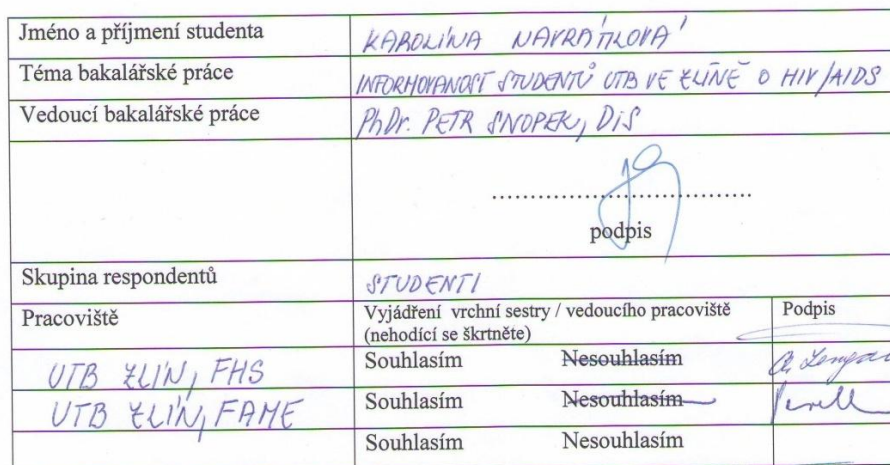 Jméno a příjmení studenta KAROLÍNA NAVRÁTILOVÁ
Téma bakalářské práce INFORMOVANOST STUDENTŮ UTB VE ZLÍNĚ O HIV/AIDS
Vedoucí bakalářské práce PhDr. PETR SNOPEK, DiS
....................................
podpis
Skupina respondentů STUDENTI
Pracoviště Vyjádření vrchní sestry / vedoucího pracoviště Podpis
(nehodící se škrtněte)
UTB ZLÍN, FHS Souhlasím Nesouhlasím
UTB ZLÍN, FAME Souhlasím Nesouhlasím
Souhlasím Nesouhlasím